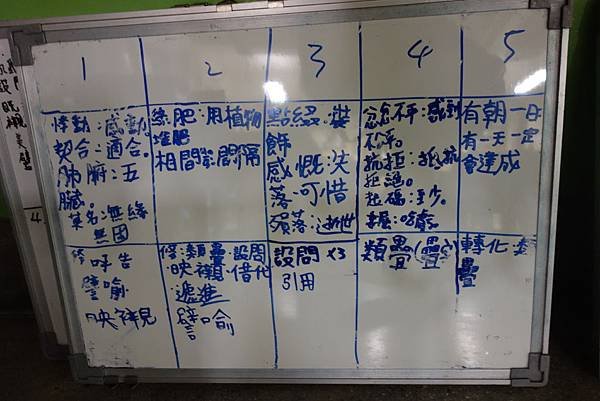 1
2
3
4
5
悸動：感動
契合：適合。
肺腑：五
臟。
莫名：無緣
無因
綠肥：用植物
堆肥
相間：間隔
點綴：裝
飾
感慨：決
落：可惜
殞落：逝世
忿忿不平：感到
不平。
抗拒：抵抗
拒絕。
起碼：至少。
有朝一日
有一天一定
會達成
修：呼告
譬喻
映襯
修：類疊：設問
映襯：借代
遞進
譬喻
設問x3
引用
類疊(疊字)
轉化：類
疊
4